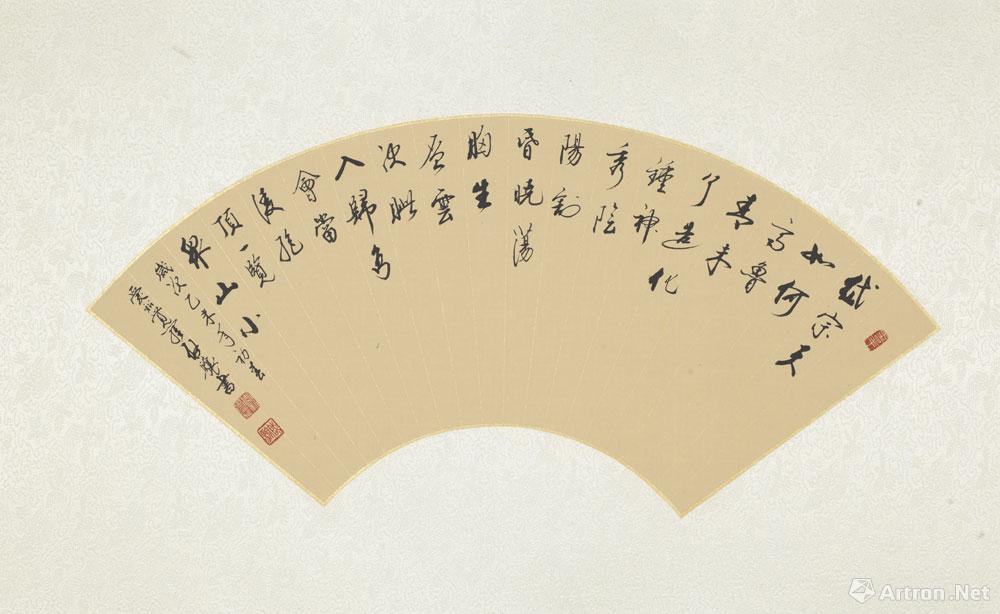 岱宗夫
如何
齊魯
青未
了造化
鍾神
秀陰
陽割
昏曉蕩
胸生
層雲
決眥
入歸鳥
會當
淩絕
頂一覽
眾山小
歲次乙未年初春
愛新覺羅啟驤書
Artron.Net